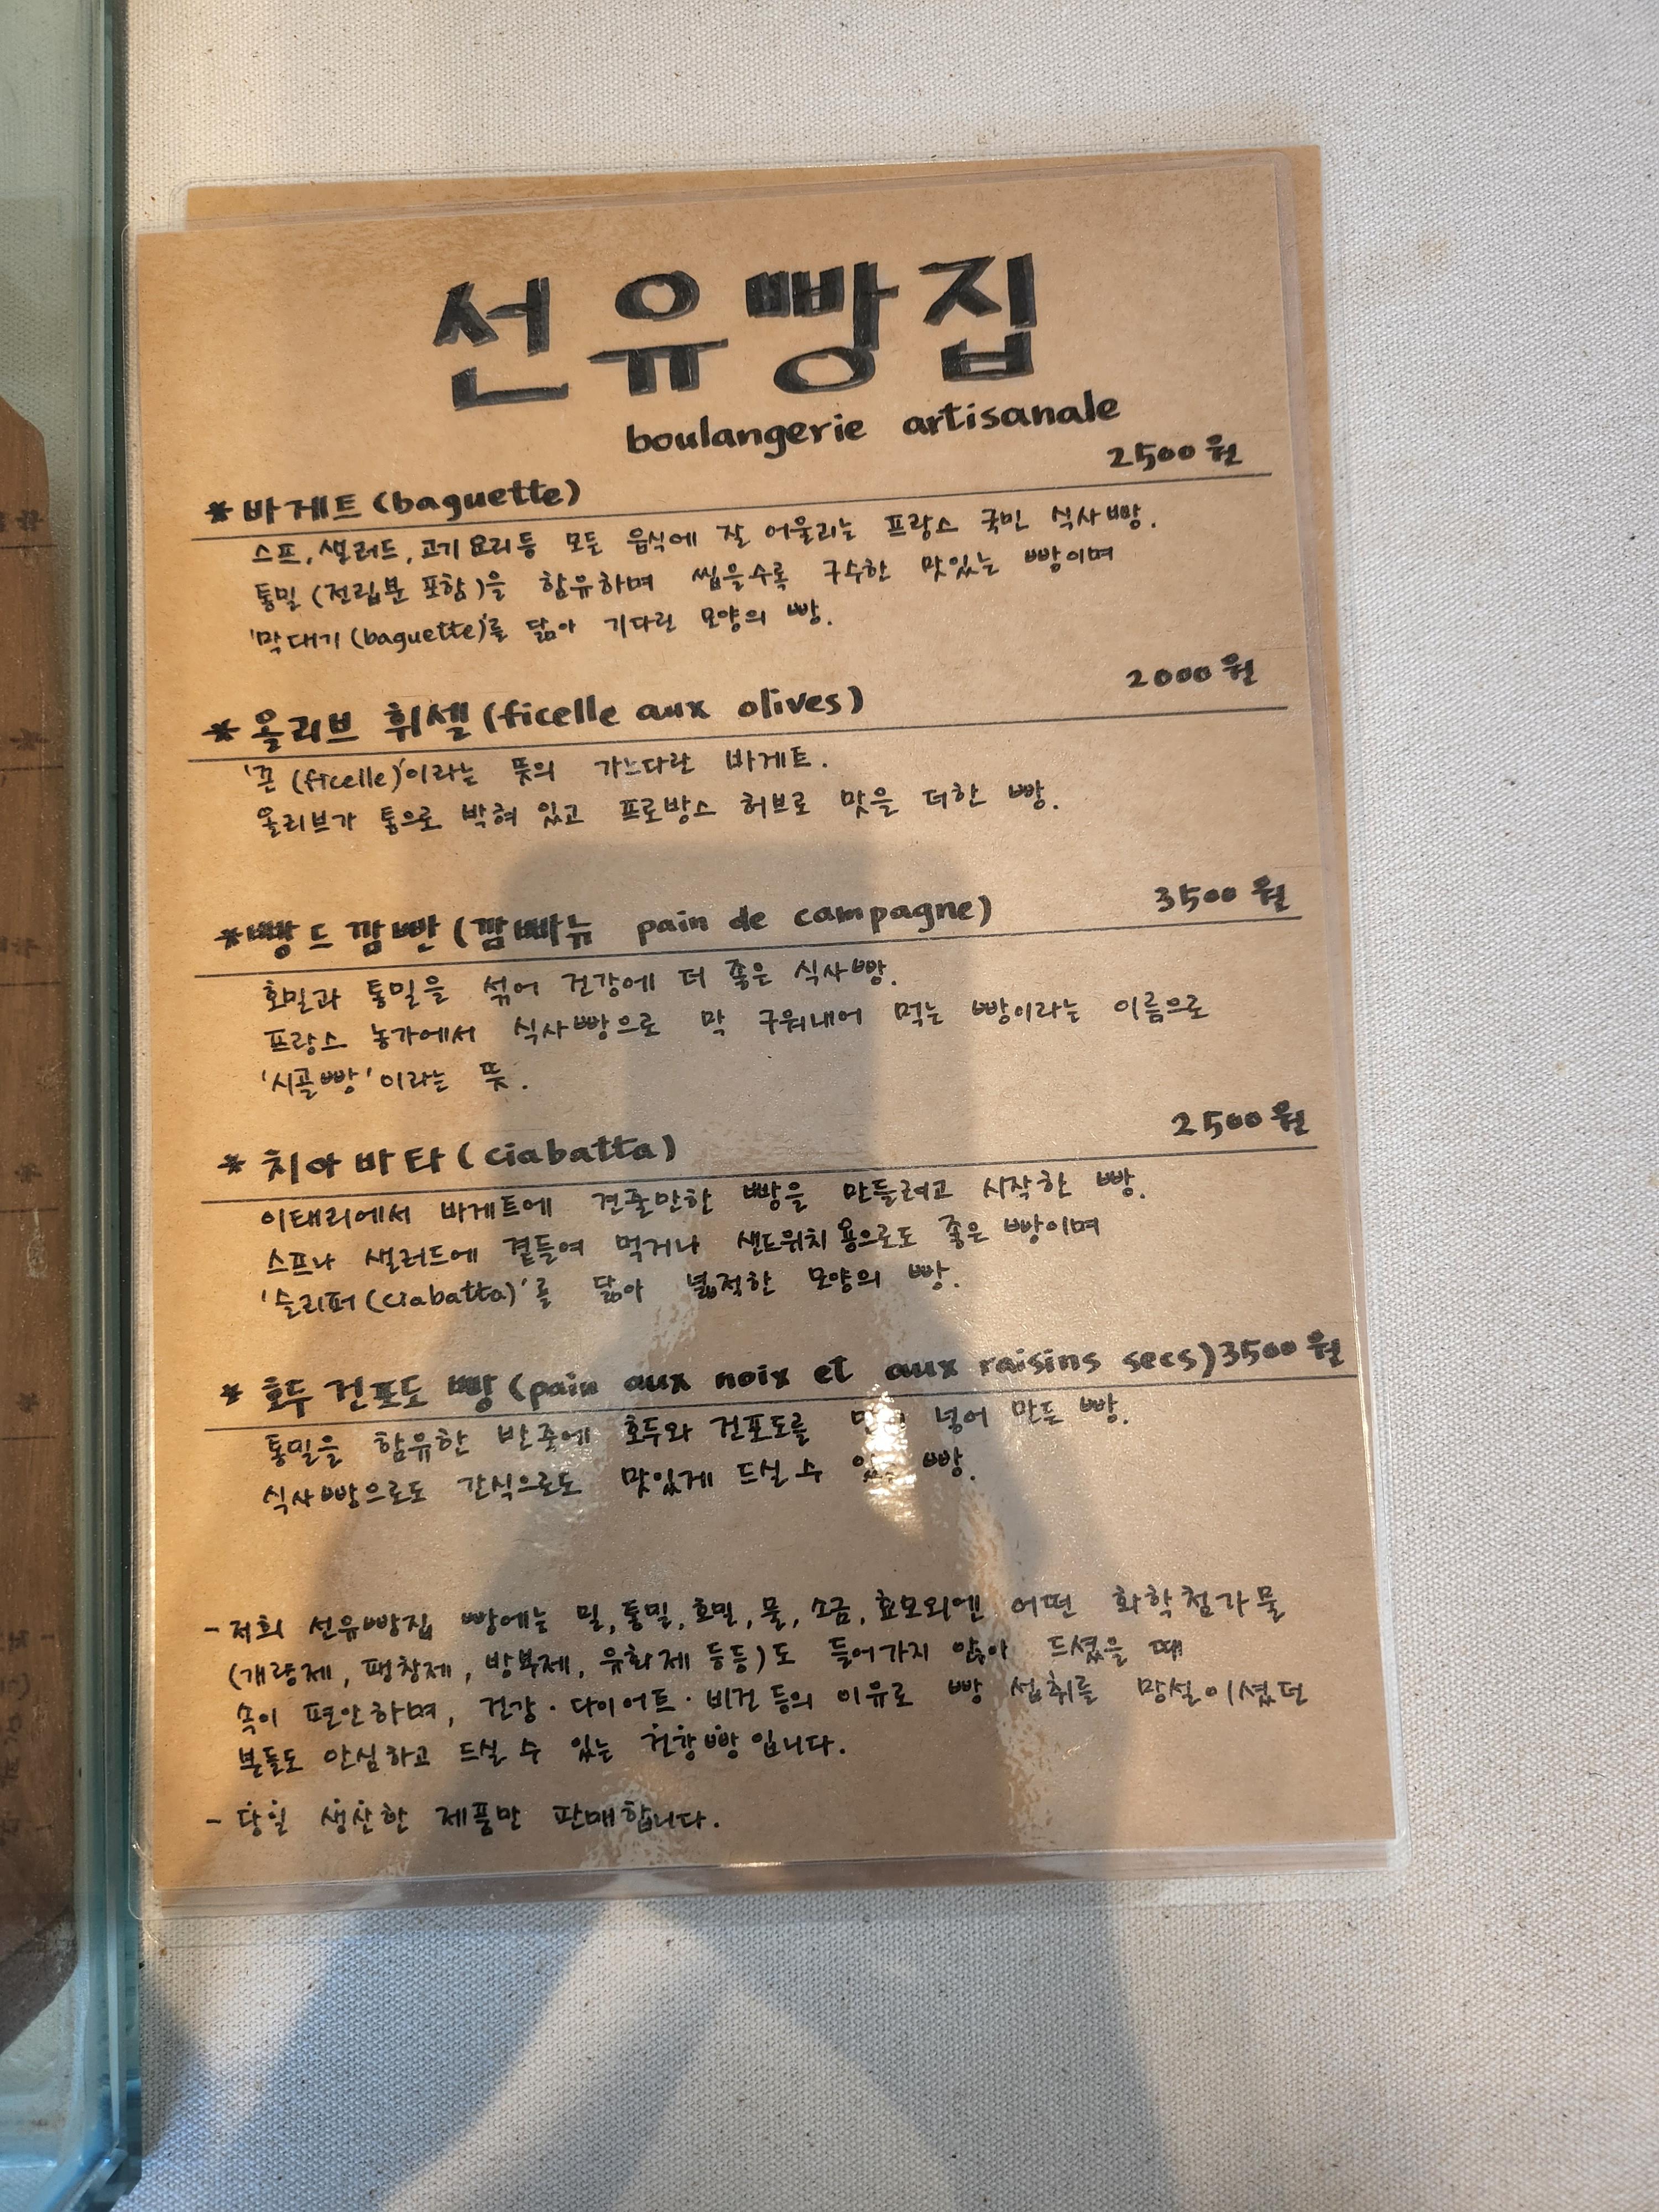 선유빵집
boulangerie artisanale
*바게트(baguette) 2500원
스프, 샐러드, 고기 요리 등 모든 음식에 잘 어울리는 프랑스 국민 식사빵.
통밀(전립분 포함)을 함유하며 씹을수록 구수한 맛있는 빵이며
'막대기(baguette)'를 닮아 기다란 모양의 빵.
*올리브 휘셀(ficelle aux olives) 2000원
'끈(ficelle)'이라는 뜻의 가느다란 바게트.
올리브가 통으로 박혀 있고 프로방스 허브로 맛을 더한 빵.
*빵드깜빤(깜빠뉴 pain de campagne) 3500원
호밀과 통밀을 섞어 건강에 더 좋은 식사빵.
프랑스 농가에서 식사빵으로 막 구워내어 먹는 빵이라는 이름으로
'시골빵'이라는 뜻.
*치아바타(ciabatta) 2500원
이태리에서 바게트에 견줄만한 빵을 만들려고 시작한 빵.
스프나 샐러드에 곁들여 먹거나 샌드위치용으로도 좋은 빵이며
'슬리퍼(ciabatta)'를 닮아 넓적한 모양의 빵.
*호두건포도빵(pain aux noix et aux raisins secs) 3500원
통밀을 함유한 반죽에 호두와 건포도를 넣어 만든 빵.
식사빵으로도 간식으로도 맛있게 드실 수 빵.
-저희 선유빵집 빵에는 밀, 통밀, 호밀, 물, 소금, 효모외엔 어떤 화학첨가물
(개량제, 팽창제, 방부제, 유화제 등등)도 들어가지 않아 드셨을 때
속이 편안하며, 건강·다이어트·비건 등의 이유로 빵 섭취를 망설이셨던
분들도 안심하고 드실 수 있는 건강빵입니다.
-당일 생산한 제품만 판매합니다.